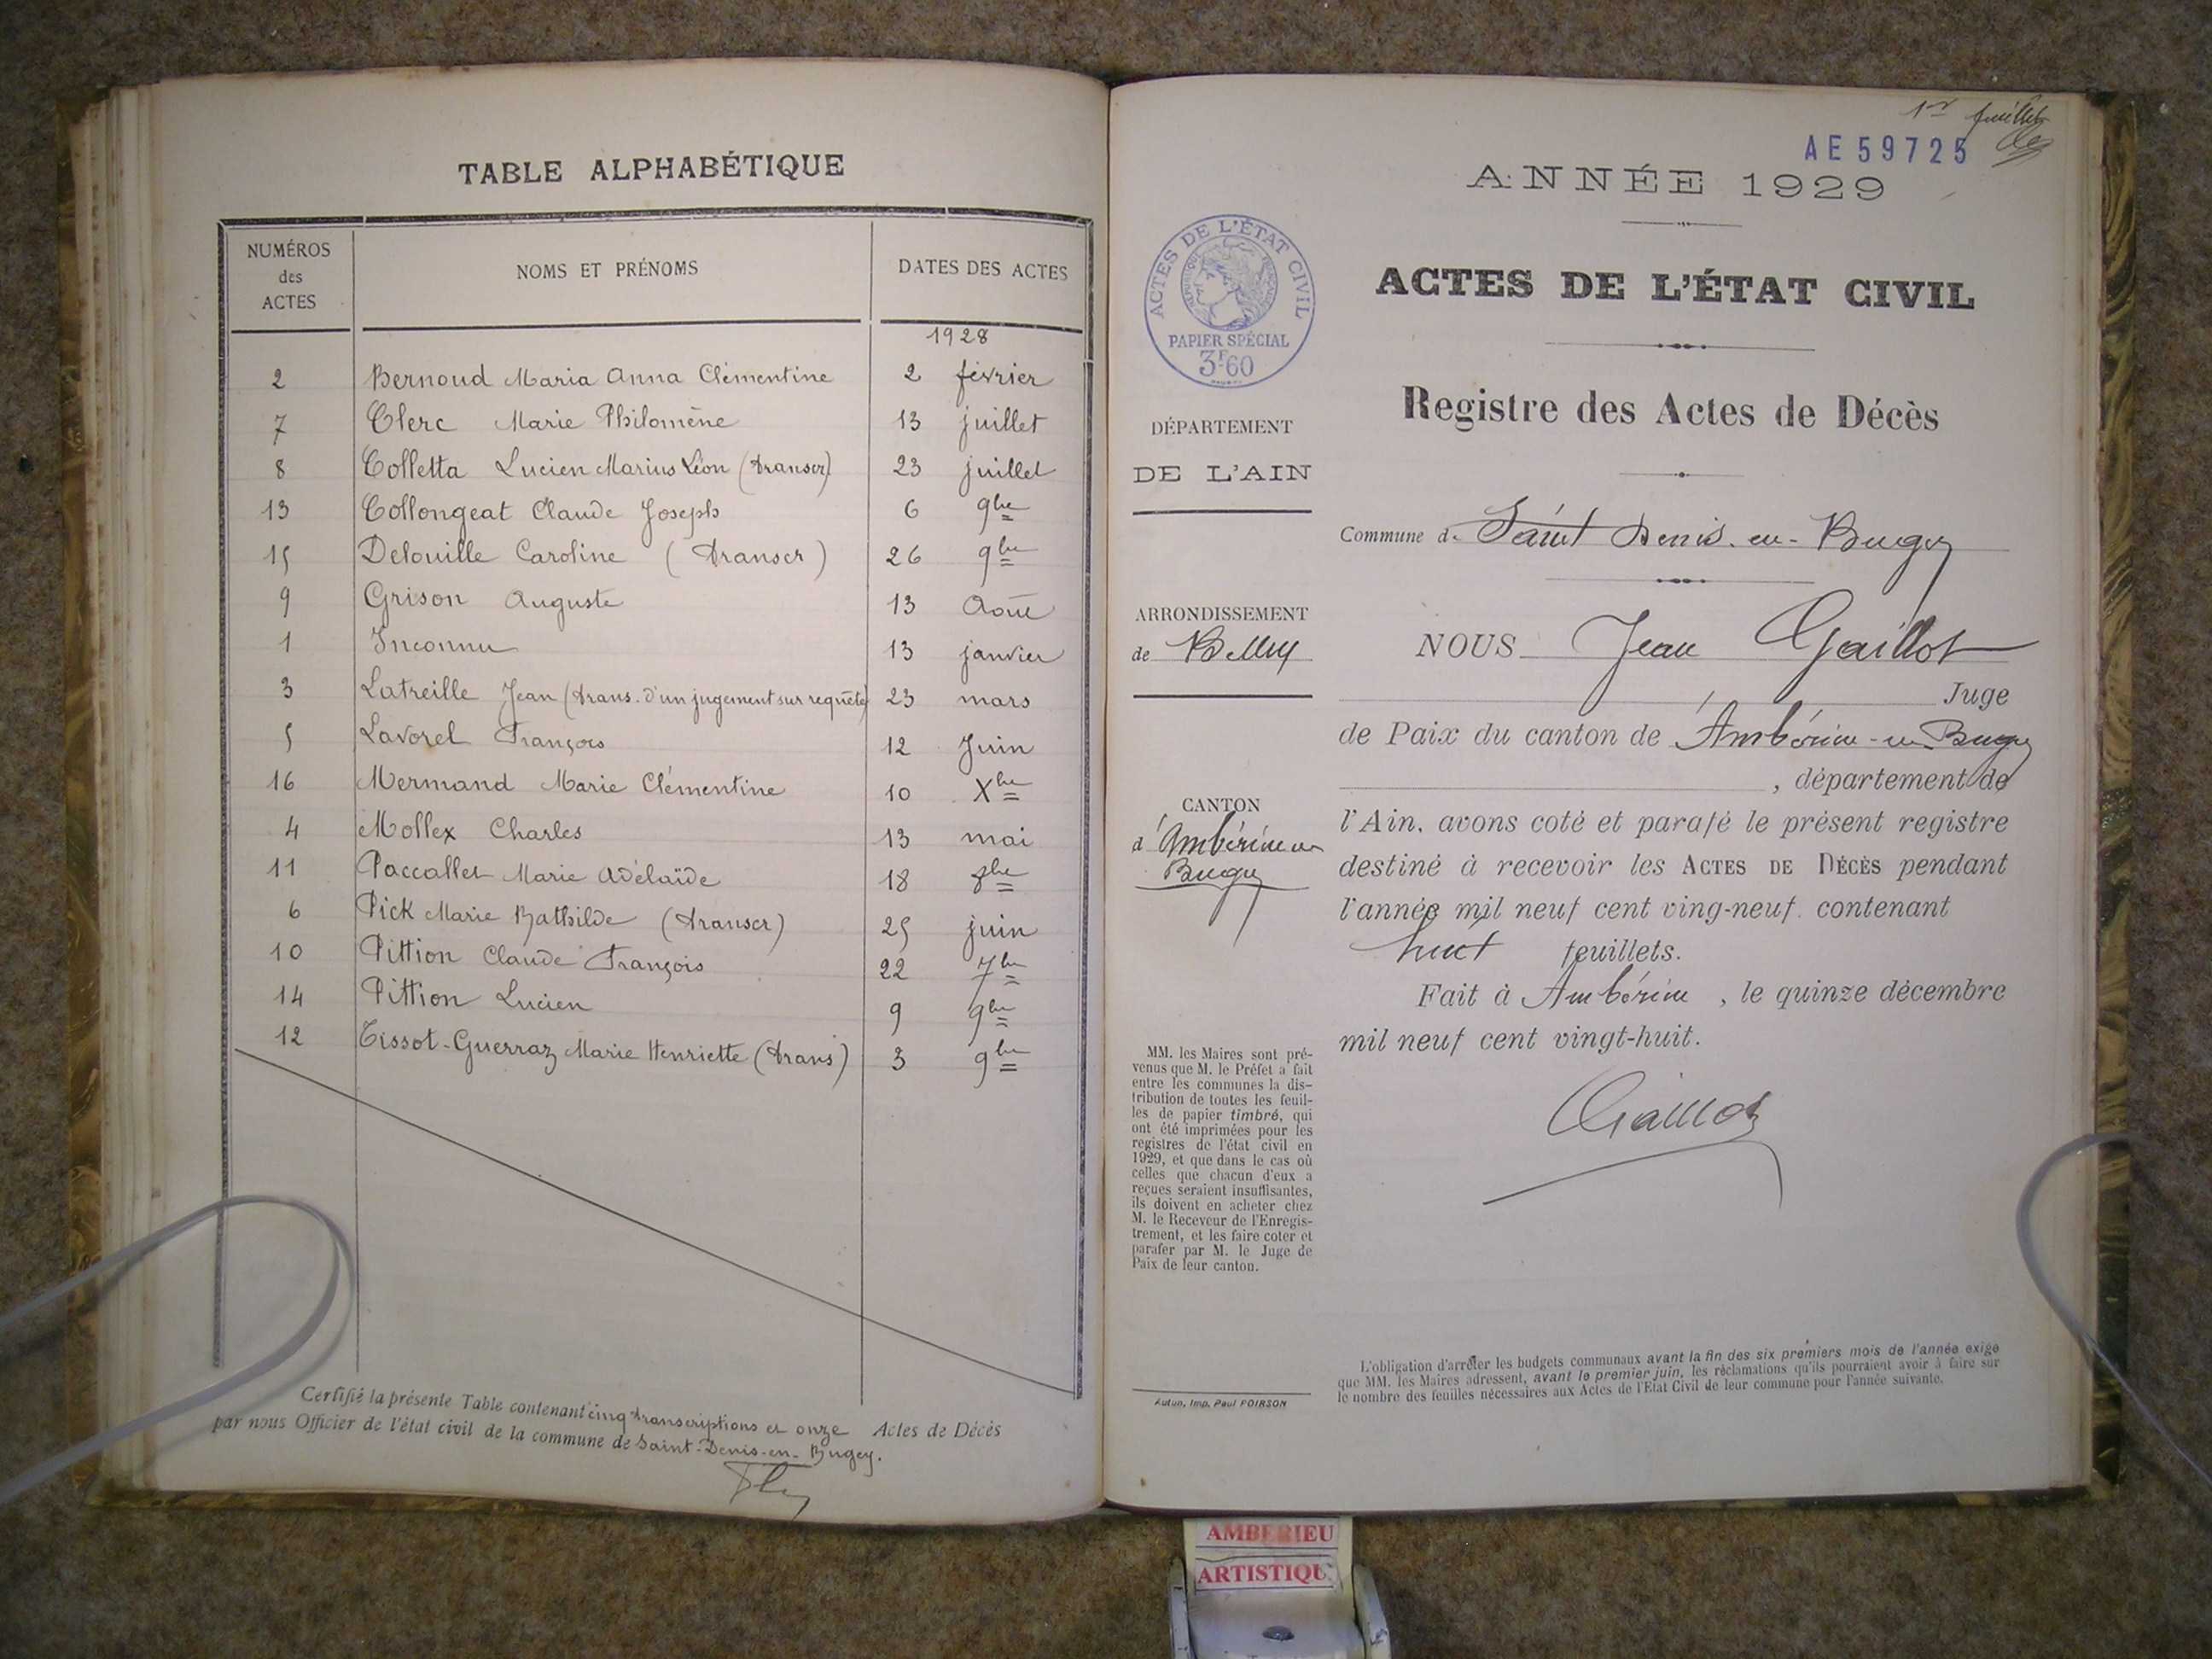 TABLE ALPHABÉTIQUE
NUMÉROS des ACTES NOMS ET PRÉNOMS DATES DES ACTES
1928
2 Bernoud Maria Anna Clémentine 2 février
7 Clerc Marie Philomène 13 juillet
8 Colletta Lucien Marius Léon (transcr) 23 juillet
13 Collongeat Claude Joseph 6 9bre
15 Delouille Caroline (transcr) 26 9bre
9 Grison Auguste 13 Août
1 Inconnu 13 janvier
3 Latreille Jean (trans. d'un jugement sur requête) 23 mars
5 Lavorel François 12 Juin
16 Mermand Marie Clémentine 10 Xbre
4 Mollex Charles 13 mai
11 Paccallet Marie Adélaïde 18 8bre
6 Pick Marie Bathilde (transcr) 25 juin
10 Pittion Claude François 22 7bre
14 Pittion Lucien 9 9bre
12 Tissot-Guerraz Marie Henriette (trans) 3 9bre
Certifié la présente Table contenant cinq transcriptions et onze Actes de Décès
par nous Officier de l'état civil de la commune de Saint-Denis-en-Bugey.
1er feuillet
AE59725
ANNÉE 1929
ACTES DE L'ÉTAT CIVIL
RÉPUBLIQUE FRANÇAISE
PAPIER SPÉCIAL
3F60
ACTES DE L'ÉTAT CIVIL
Registre des Actes de Décès
DÉPARTEMENT
DE L'AIN
Commune de Saint Denis-en-Bugey
ARRONDISSEMENT
de Belley
NOUS Jean Gaillot
Juge
de Paix du canton de Ambérieu-en-Bugey
, département de
CANTON
d'Ambérieu en
Bugey
l'Ain, avons coté et parafé le présent registre
destiné à recevoir les ACTES DE DÉCÈS pendant
l'année mil neuf cent ving-neuf. contenant
huit feuillets.
Fait à Ambérieu, le quinze décembre
mil neuf cent vingt-huit.
Gaillot
MM. les Maires sont pré-
venus que M. le Préfet a fait
entre les communes la dis-
tribution de toutes les feuil-
les de papier timbré, qui
ont été imprimées pour les
registres de l'état civil en
1929, et que dans le cas où
celles que chacun d'eux a
reçues seraient insuffisantes,
ils doivent en acheter chez
M. le Receveur de l'Enregis-
trement, et les faire coter et
parafer par M. le Juge de
Paix de leur canton.
Autun, Imp. Paul POIRSON
L'obligation d'arrêter les budgets communaux avant la fin des six premiers mois de l'année exige
que MM. les Maires adressent, avant le premier juin, les réclamations qu'ils pourraient avoir à faire sur
le nombre des feuilles nécessaires aux Actes de l'Etat Civil de leur commune pour l'année suivante.
AMBERIEU
ARTISTIQUE